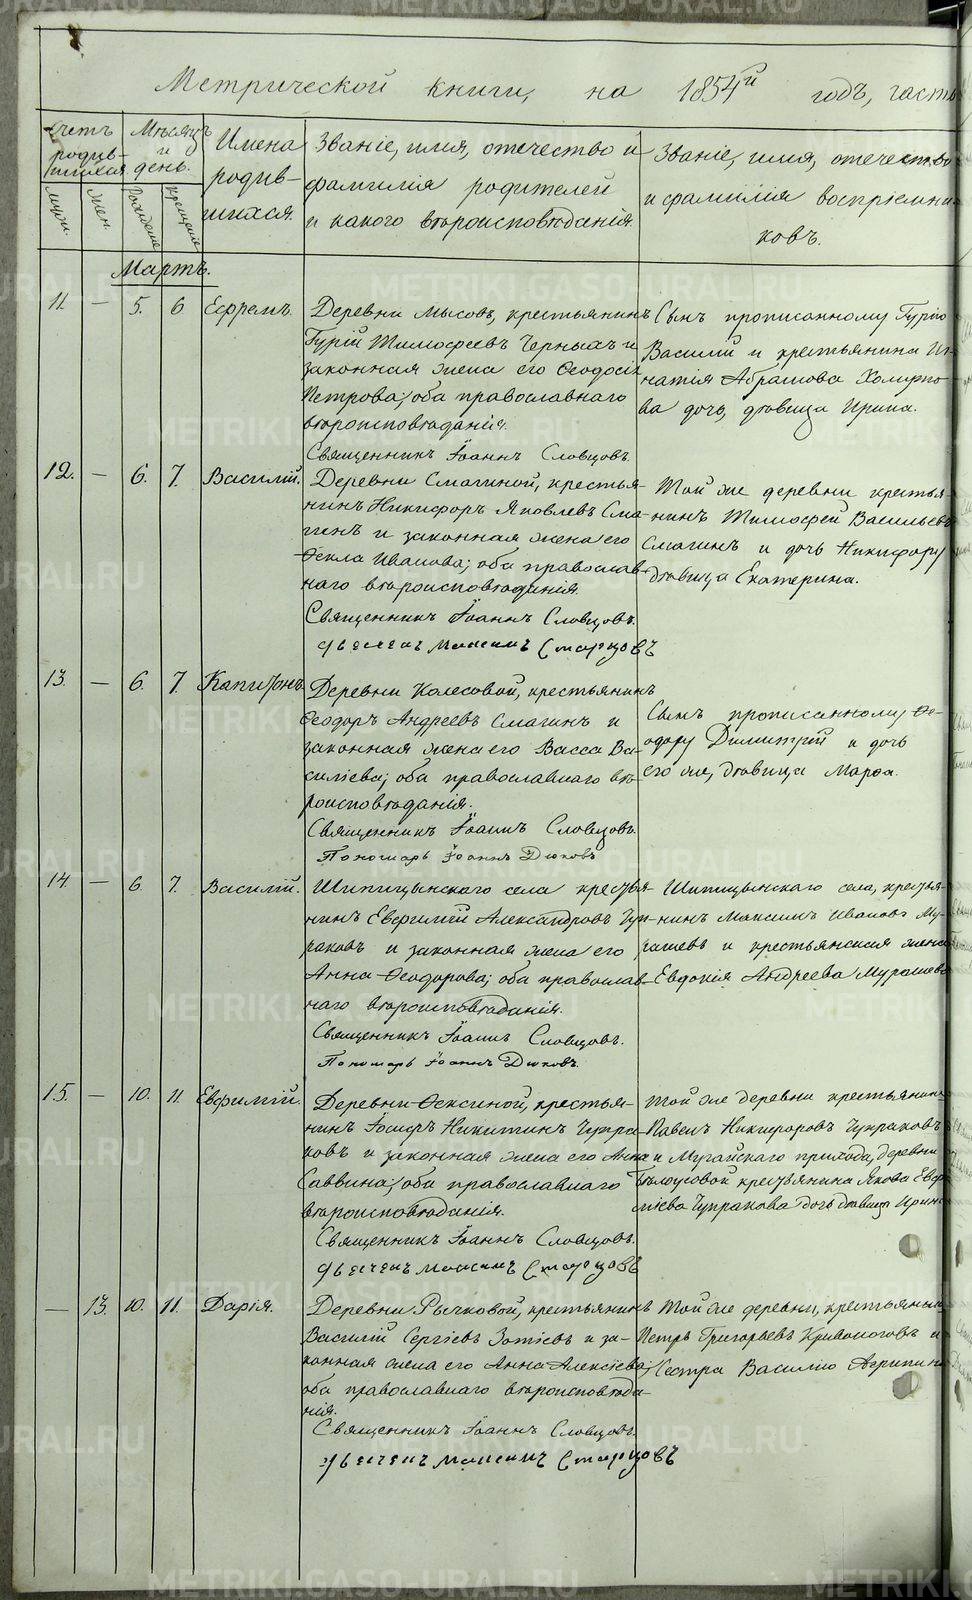 Метрической книги, на 1854й годъ, часть
Счетъ родив-шихся.
Мѣсяцъ и день.
Имена родив-шихся.
Званіе, имя, отечество и
фамилія родителей
и какого вѣроисповѣданія.
Званіе, имя, отечество
и фамилія воспріемни-
ковъ.
Муж.
Жен.
Рожденіе
Крещеніе
Мартъ.
11. — 5. 6 Ефремъ.
Деревни Мысовъ, крестьянинъ
Гурій Тимофеевъ Черныхъ и
законная жена его Ѳеодосія
Петрова; оба православнаго
вѣроисповѣданія.
Священникъ Іоаннъ Словцовъ.
Сынъ прописанному Гурію
Василій и крестьянина Иг-
натія Абрамова
дочь, дѣвица Ирина.
12. — 6. 7. Василій.
Деревни Смагиной, крестья-
нинъ Никифоръ Яковлевъ Сма-
гинъ и законная жена его
Ѳекла Иванова; оба православ-
наго вѣроисповѣданія.
Священникъ Іоаннъ Словцовъ.
Дьячекъ Максимъ Старцовъ
Той же деревни крестья-
нинъ Тимофей Васильевъ
Смагинъ и дочь Никифору
дѣвица Екатерина.
13. — 6. 7. Капитонъ.
Деревни Колесовой, крестьянинъ
Ѳеодоръ Андреевъ Смагинъ и
законная жена его Васса Ва-
силіева; оба православнаго вѣ-
роисповѣданія.
Священникъ Іоаннъ Словцовъ.
Пономарь Іоаннъ Дюковъ
Сынъ прописанному Ѳе-
одору Димитрій и дочь
его же, дѣвица Марѳа.
14. — 6. 7. Василій.
Шипицынскаго села крестья-
нинъ Евфимій Александровъ Чуп-
раковъ и законная жена его
Анна Ѳеодорова; оба православ-
наго вѣроисповѣданія.
Священникъ Іоаннъ Словцовъ.
Пономарь Іоаннъ Дюковъ.
Шипицынскаго села, крестья-
нинъ Максимъ Ивановъ Му-
рашевъ и крестьянская жена
Евдокія Андреева Мурашева
15. — 10. 11. Евфимій.
Деревни Ѳексиной, крестья-
нинъ Іосифъ Никитинъ Чупра-
ковъ и законная жена его Анна
Саввина; оба православнаго
вѣроисповѣданія.
Священникъ Іоаннъ Словцовъ.
Дьячекъ Максимъ Старцовъ
Той же деревни крестьянинъ
Павелъ Никифоровъ Чупраковъ
и Мугайскаго прихода, деревни
Бѣлоусовой крестьянина Якова Евф-
иміева Чупракова дочь дѣвица Ирина
— 13. 10. 11. Дарія.
Деревни Рычковой, крестьянинъ
Василій Сергіевъ Зотіевъ и за-
конная жена его Анна Алексіева;
оба православнаго вѣроисповѣда-
нія.
Священникъ Іоаннъ Словцовъ.
Дьячекъ Максимъ Старцовъ
Той же деревни, крестьянинъ
Петръ Григорьевъ Кривоноговъ и
Сестра Василію Агрипина
METRIKI.GASO-URAL.RU